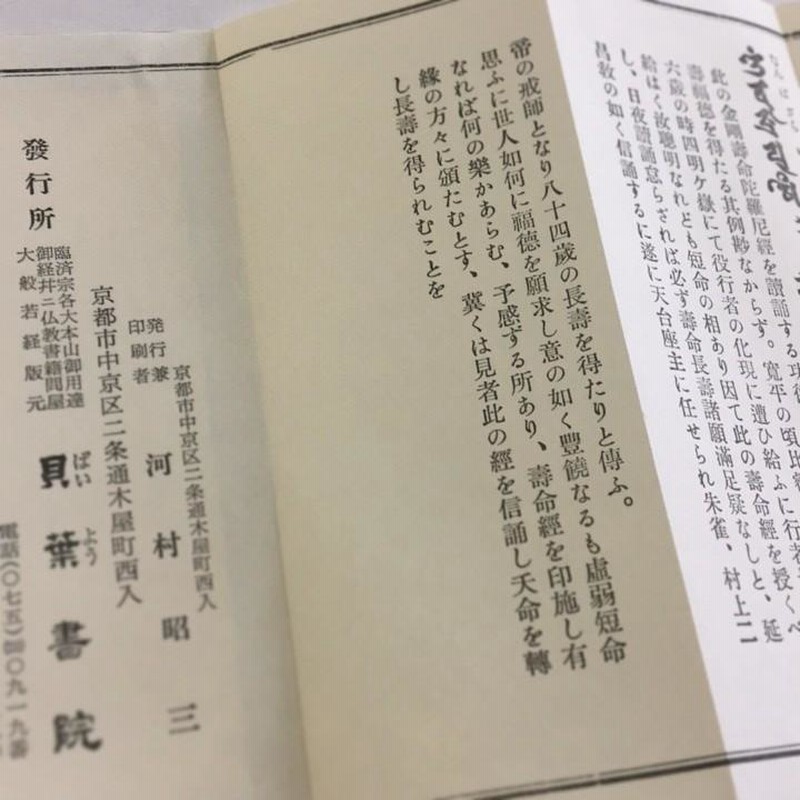 なんばざら
此の金剛壽命陀羅尼經を讀誦する功
壽福德を得たる其例尠なからず。寛平の頃比
六歲の時四明ケ嶽にて役行者の化現に遭ひ給ふに行者
給はく汝聰明なれども短命の相あり因て此の壽命經を授くべ
し、日夜讀誦怠らざれば必ず壽命長壽諸願滿足疑なしと、延
昌敎の如く信誦するに遂に天台座主に任せられ朱雀、村上二
帝の戒師となり八十四歲の長壽を得たりと傳ふ。
思ふに世人如何に福德を願求し意の如く豐饒なるも虛弱短命
なれば何の樂かあらむ、予感ずる所あり、壽命經を印施し有
緣の方々に頒たむとす、冀くは見者此の經を信誦し天命を轉
し長壽を得られむことを
京都市中京区二条通木屋町西入
発行兼
印刷者
河村昭三
京都市中京区二条通木屋町西入
發行所
臨済宗各大本山御用達
御経并ニ仏教書籍問屋
大般若経版元
貝葉書院
ばいよう
電話(〇七五)〇九一九番